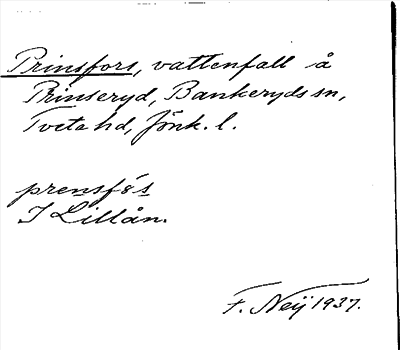 Prinsfors, vattenfall å
Prinseryd, Bankeryds sn,
Tveta hd, Jönk. l.
prensfós
I Lillån.
F. Neij 1937.